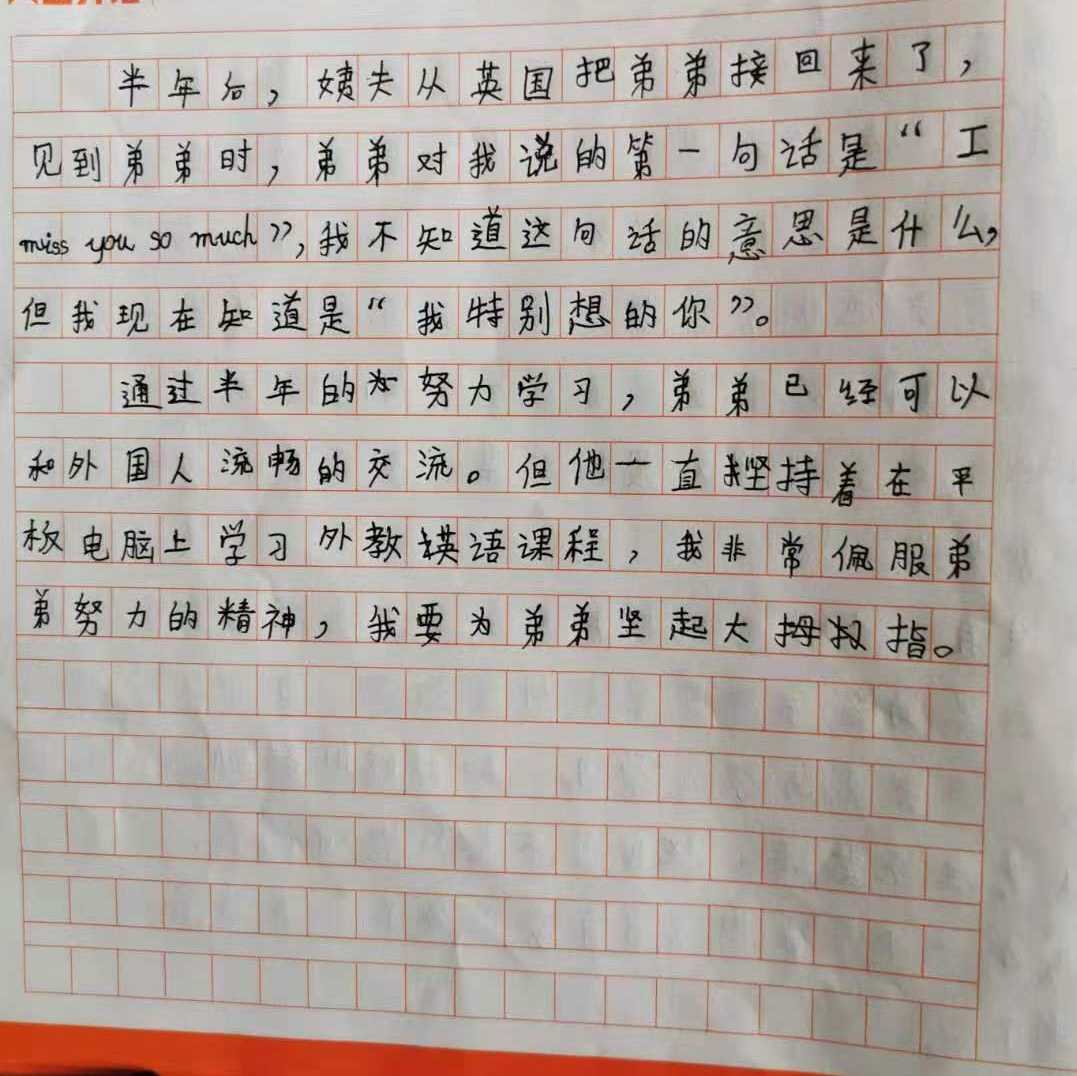 半年后，姨夫从英国把弟弟接回来了，
见到弟弟时，弟弟对我说的第一句话是“I
miss you so much”，我不知道这句话的意思是什么，
但我现在知道是“我特别想的你”。
通过半年的努力学习，弟弟已经可以
和外国人流畅的交流。但他一直坚持着在平
板电脑上学习外教英语课程，我非常佩服弟
弟努力的精神，我要为弟弟坚起大拇指。